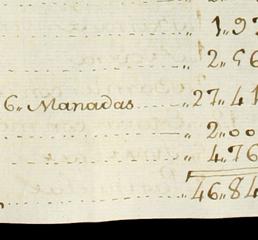 1,,9
2,,56
6,, Manadas 27,,41
2,,00
4,,76
46,,84